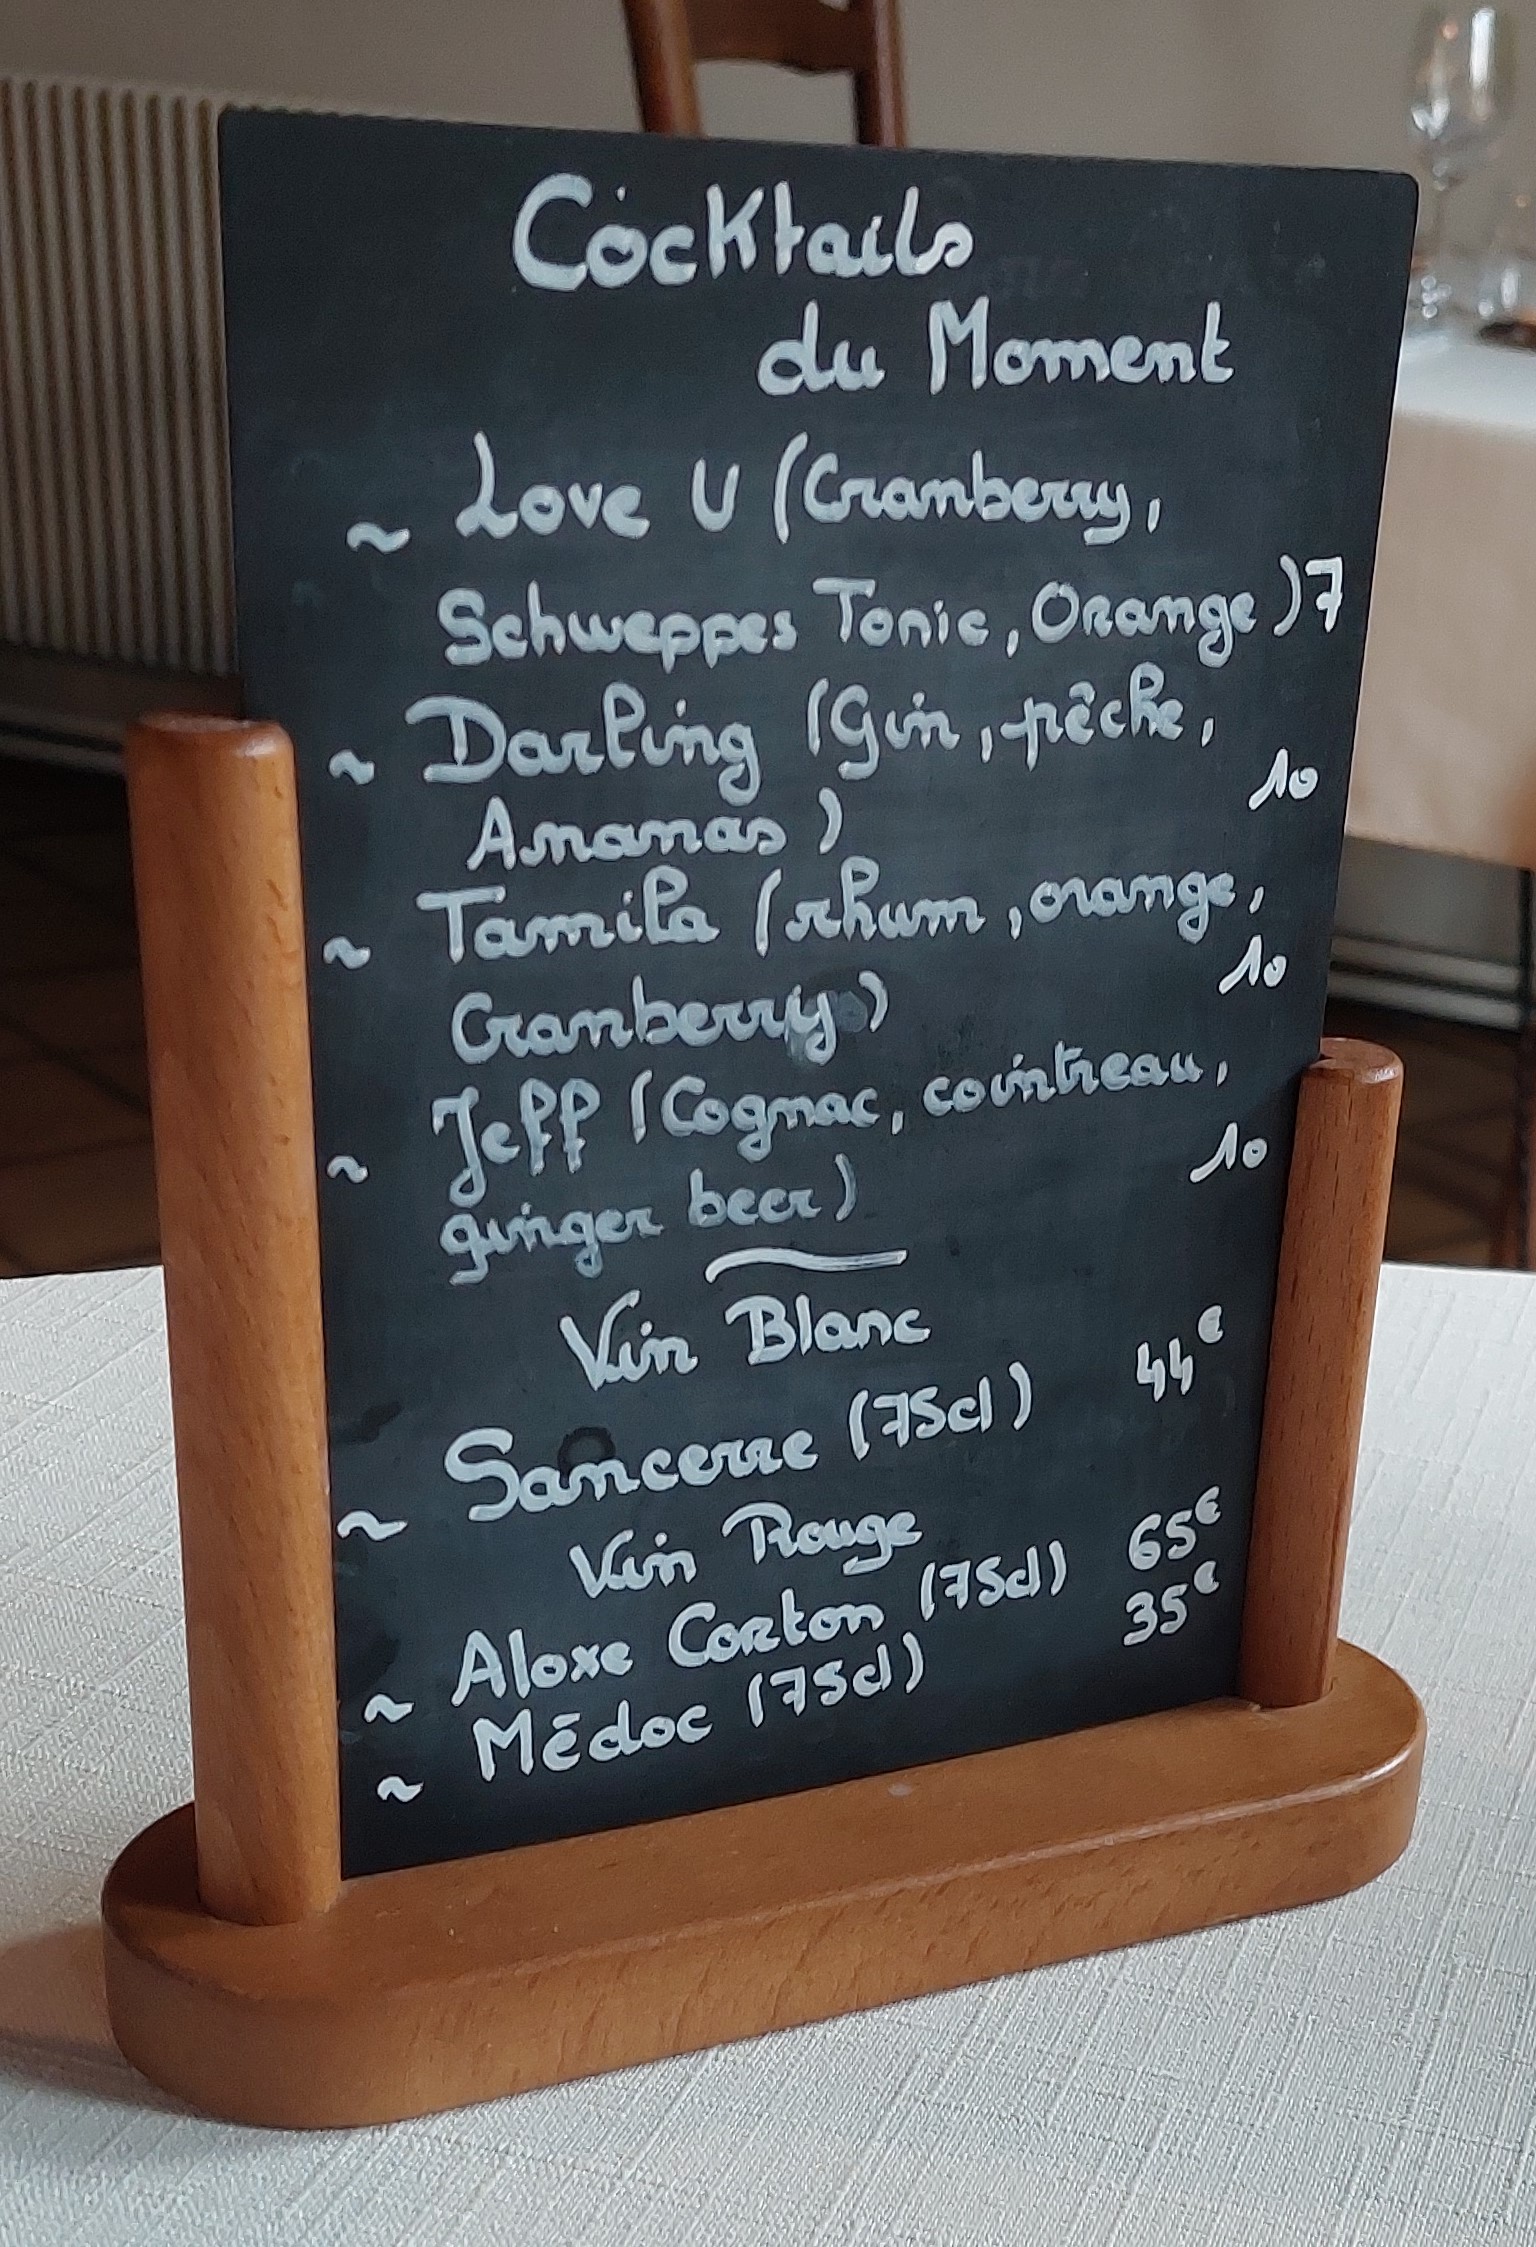 Cocktails
du Moment
~ Love U (Cranberry,
Schweppes Tonic, Orange) 7
~ Darling (Gin, pêche,
Ananas) 10
~ Tamila (rhum, orange,
Cranberry) 10
~ Jeff (Cognac, cointreau,
ginger beer) 10
Vin Blanc
~ Sancerre (75cl) 44€
Vin Rouge
~ Aloxe Corton (75cl) 65€
~ Médoc (75cl) 35€